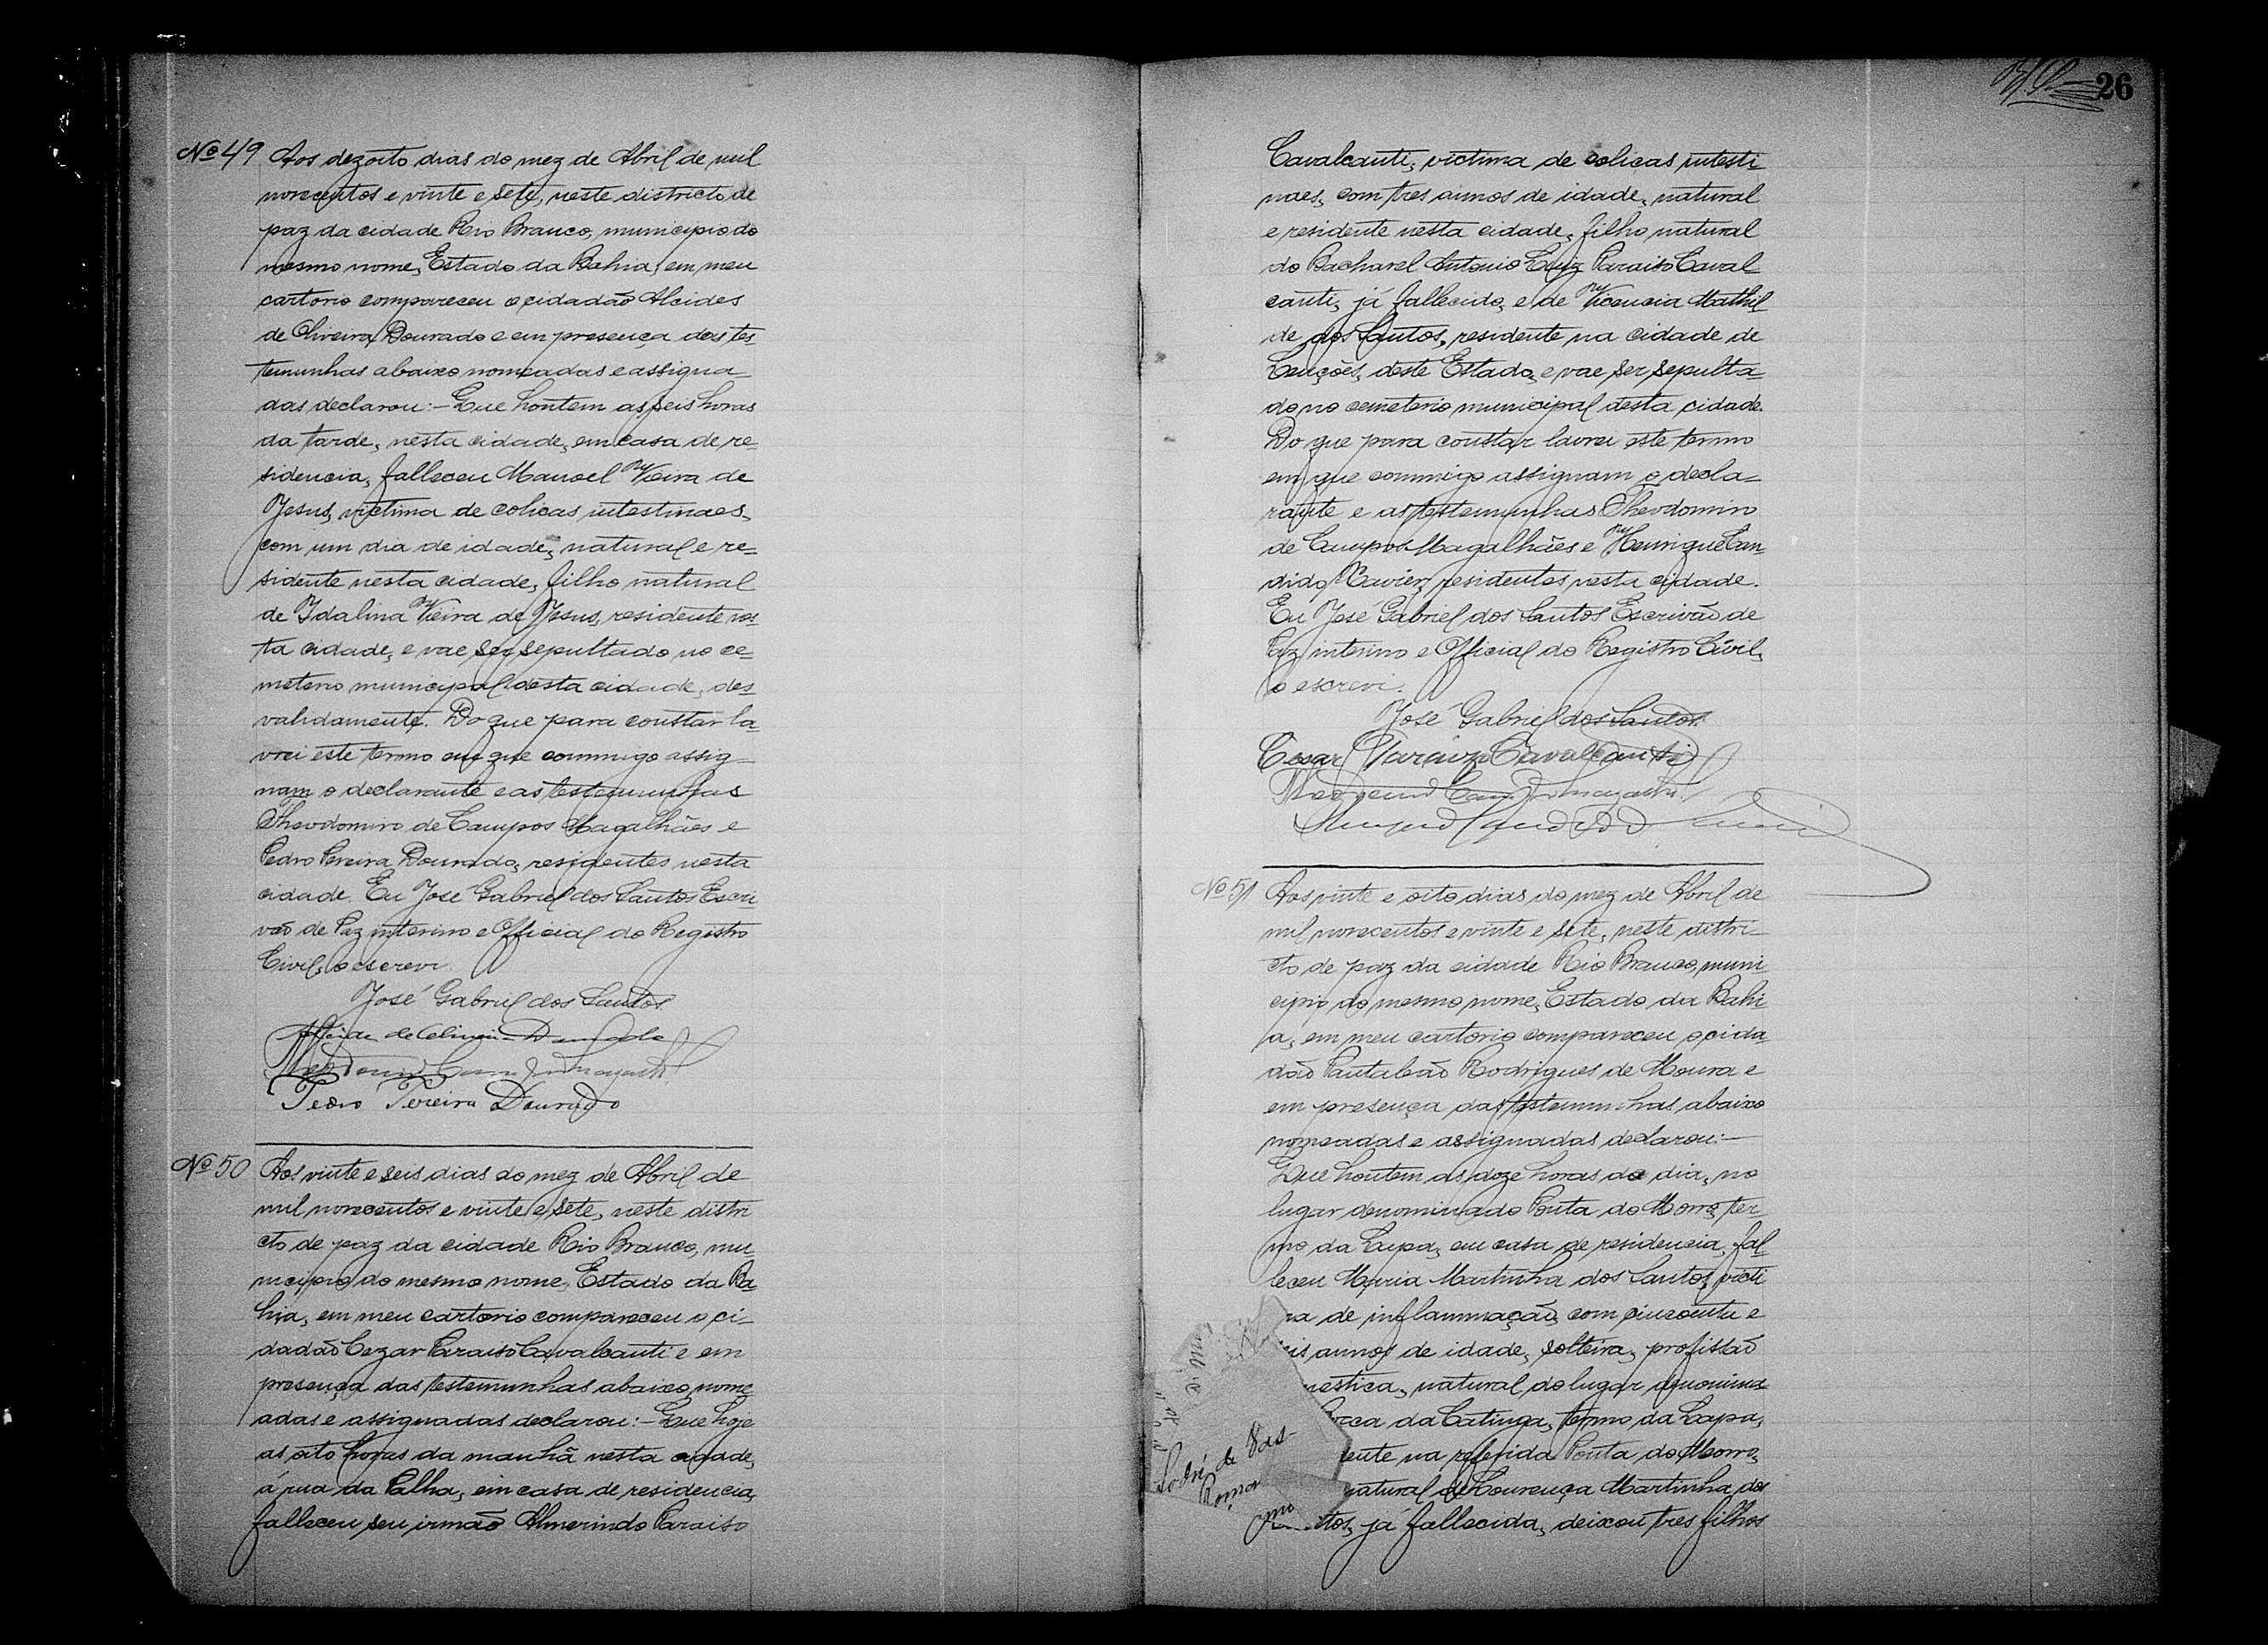 Nº 49 Aos dezoito dias do mez de Abril de mil
novecentos e vinte e sete, neste districto de
paz da cidade Rio Branco, municipio do
mesmo nome, Estado da Bahia, em meu
cartorio compareceu o cidadão Alcides
de Oliveira Dourado e em presença das tes-
temunhas abaixo nomeadas e assigna-
das declarou:- Que hontem as seis horas
da tarde, nesta cidade, em casa de re-
sidencia, falleceu Manoel Vieira de
Jesus, victima de colicas intestinaes,
com um dia de idade, natural e re-
sidente nesta cidade, filho natural
de Idalina Vieira de Jesus, residente nes-
ta cidade, e vae ser sepultado no ce-
meterio municipal desta cidade, des-
validamente. Do que para constar la-
vrei este termo em que commigo assig-
nam o declarante e as testemunhas
Theodomiro de Campos Magalhães e
Pedro Pereira Dourado, residentes nesta
cidade. Eu José Gabriel dos Santos Escri
vão de Paz interino e Official do Registro
Civil, o escrevi.
José Gabriel dos Santos
Alcides de Oliveira Dourado
Pedro Pereira Dourado
Nº 50 Aos vinte e seis dias do mez de Abril de
mil novecentos e vinte e sete, neste distri
cto de paz da cidade Rio Branco, mu-
nicipio do mesmo nome, Estado da Ba-
hia, em meu cartorio compareceu o ci-
dadão Cezar Paraiso Cavalcanti e em
presença das testemunhas abaixo nome
adas e assignadas declarou:- Que hoje
as oito horas da manhã nesta cidade,
á rua da Palha, em casa de residencia,
falleceu seu irmão Almerindo Paraiso
26
Cavalcanti, victima de colicas intesti-
naes, com tres annos de idade, natural
e residente nesta cidade, filho natural
do Bacharel Antonio Luiz Paraiso Caval
canti, já fallecido, e de Vicencia Mathil
de dos Santos, residente na cidade de
Lençóes, deste Estado, e vae ser sepulta-
do no cemeterio municipal desta cidade.
Do que para constar lavrei este termo
em que commigo assignam o decla-
rante e as testemunhas Theodomiro
de Campos Magalhães e Henrique Can-
dido Xavier, residentes nesta cidade.
Eu José Gabriel dos Santos Escrivão de
Paz interino e Official do Registro Civil,
o escrevi.
José Gabriel dos Santos
Cesar Paraizo Cavalcanti
Nº 51 Aos vinte e oito dias do mez de Abril de
mil novecentos e vinte e sete, neste distri-
cto de paz da cidade Rio Branco, muni-
cipio do mesmo nome, Estado da Bahi-
a, em meu cartorio compareceu o cida-
dão Pantaleão Rodrigues de Moura e
em presença das testemunhas abaixo
nomeadas e assignadas declarou:-
Que hontem as doze horas do dia, no
lugar denominado Ponta do Morro, ter
mo da Lapa, em casa de residencia, fal-
leceu Maria Martinha dos Santos, victi
ma de inflammação, com cincoenta e
annos de idade, solteira, profissão
mestica, natural do lugar denomina
da Catinga, termo da Lapa,
ente na referida Ponta do Morro,
natural de Lourença Martinha dos
tos, já fallecida, deixou tres filhos